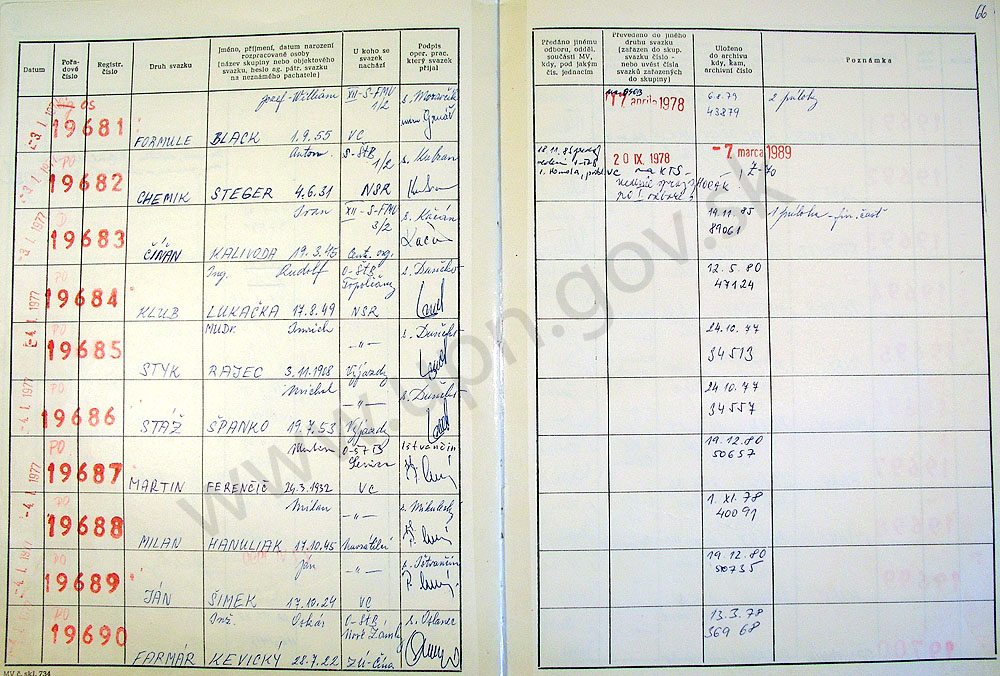 66
Datum
Pořadové číslo
Registr. číslo
Druh svazku
Jméno, příjmení, datum narození rozpracované osoby (název skupiny nebo objektového svazku, heslo ag. pátr. svazku na neznámého pachatele)
U koho se svazek nachází
Podpis oper. prac. který svazek přijal
Předáno jinému odboru, odděl. součásti MV, kdy, pod jakým čís. jednacím
Převedeno do jiného druhu svazku (zařazen do skup. svazku číslo - nebo uvést čísla svazků zařazených do skupiny)
Uloženo do archivu kdy, kam, archivní číslo
Poznámka
OS
19681
FORMULE
Jozef-William
BLACK 1.9.55
XII-S-FMV 1/2
VC
17 apríla 1978
6.2.79
43879
2 prílohy
-3 I. 1977
PO
19682
CHEMIK
Anton
STEGER 4.6.31
S-ŠtB 1/2
NSR
s. Kubran
20 IX. 1978
-7 marca 1989
-3 I. 1977
19683
ČÍŇAN
Ivan
KALIVODA 19.3.45
XII-S-FMV 3/2
Cent. org.
19.11.85
89061
1 príloha - fin. časť
PO
19684
KLUB
Ing. Rudolf
LUKAČKA 17.8.49
O-ŠTB Topoľčany
NSR
12.5.80
47124
-4 I. 1977
PO
19685
STYK
MUDr. Imrich
RAJEC 3.11.1908
-"-
Výjazdy
24.10.77
34513
-4. I. 1977
PO
19686
STÁŽ
Michal
ŠPANKO 19.7.53
-"-
Výjazdy
24.10.77
34557
-4. I. 1977
PO
19687
MARTIN
FERENČIČ 24.3.1932
O-ŠTB Levice
VC
Ištvančin
19.12.80
50657
PO
19688
MILAN
Milan
HANULIAK 17.10.45
-"-
s. Mikulecký
1. XI. 78
40091
19689
JÁN
Ján
ŠIMEK 17.10.24
-"-
VC
s. Ištvančin
19.12.80
50735
PO
19690
FARMÁR
Ing. Oskar
KEVICKÝ 28.7.22
O-ŠTB, Nové Zámky
ZÚ-Čína
s. Oslanec
13.3.78
369 68
MV č. skl. 734
www.upn.gov.sk